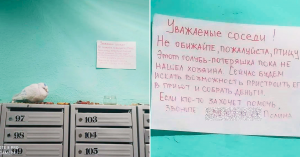 97
103
98
104
99
105
Уважаемые соседи!
Не обижайте, пожалуйста, птицу
Этот голубь-потеряшка пока не
нашел хозяина. Сейчас будем
искать возможность пристроить его
в приют и собрать деньги.
Если кто-то захочет помочь,
звоните